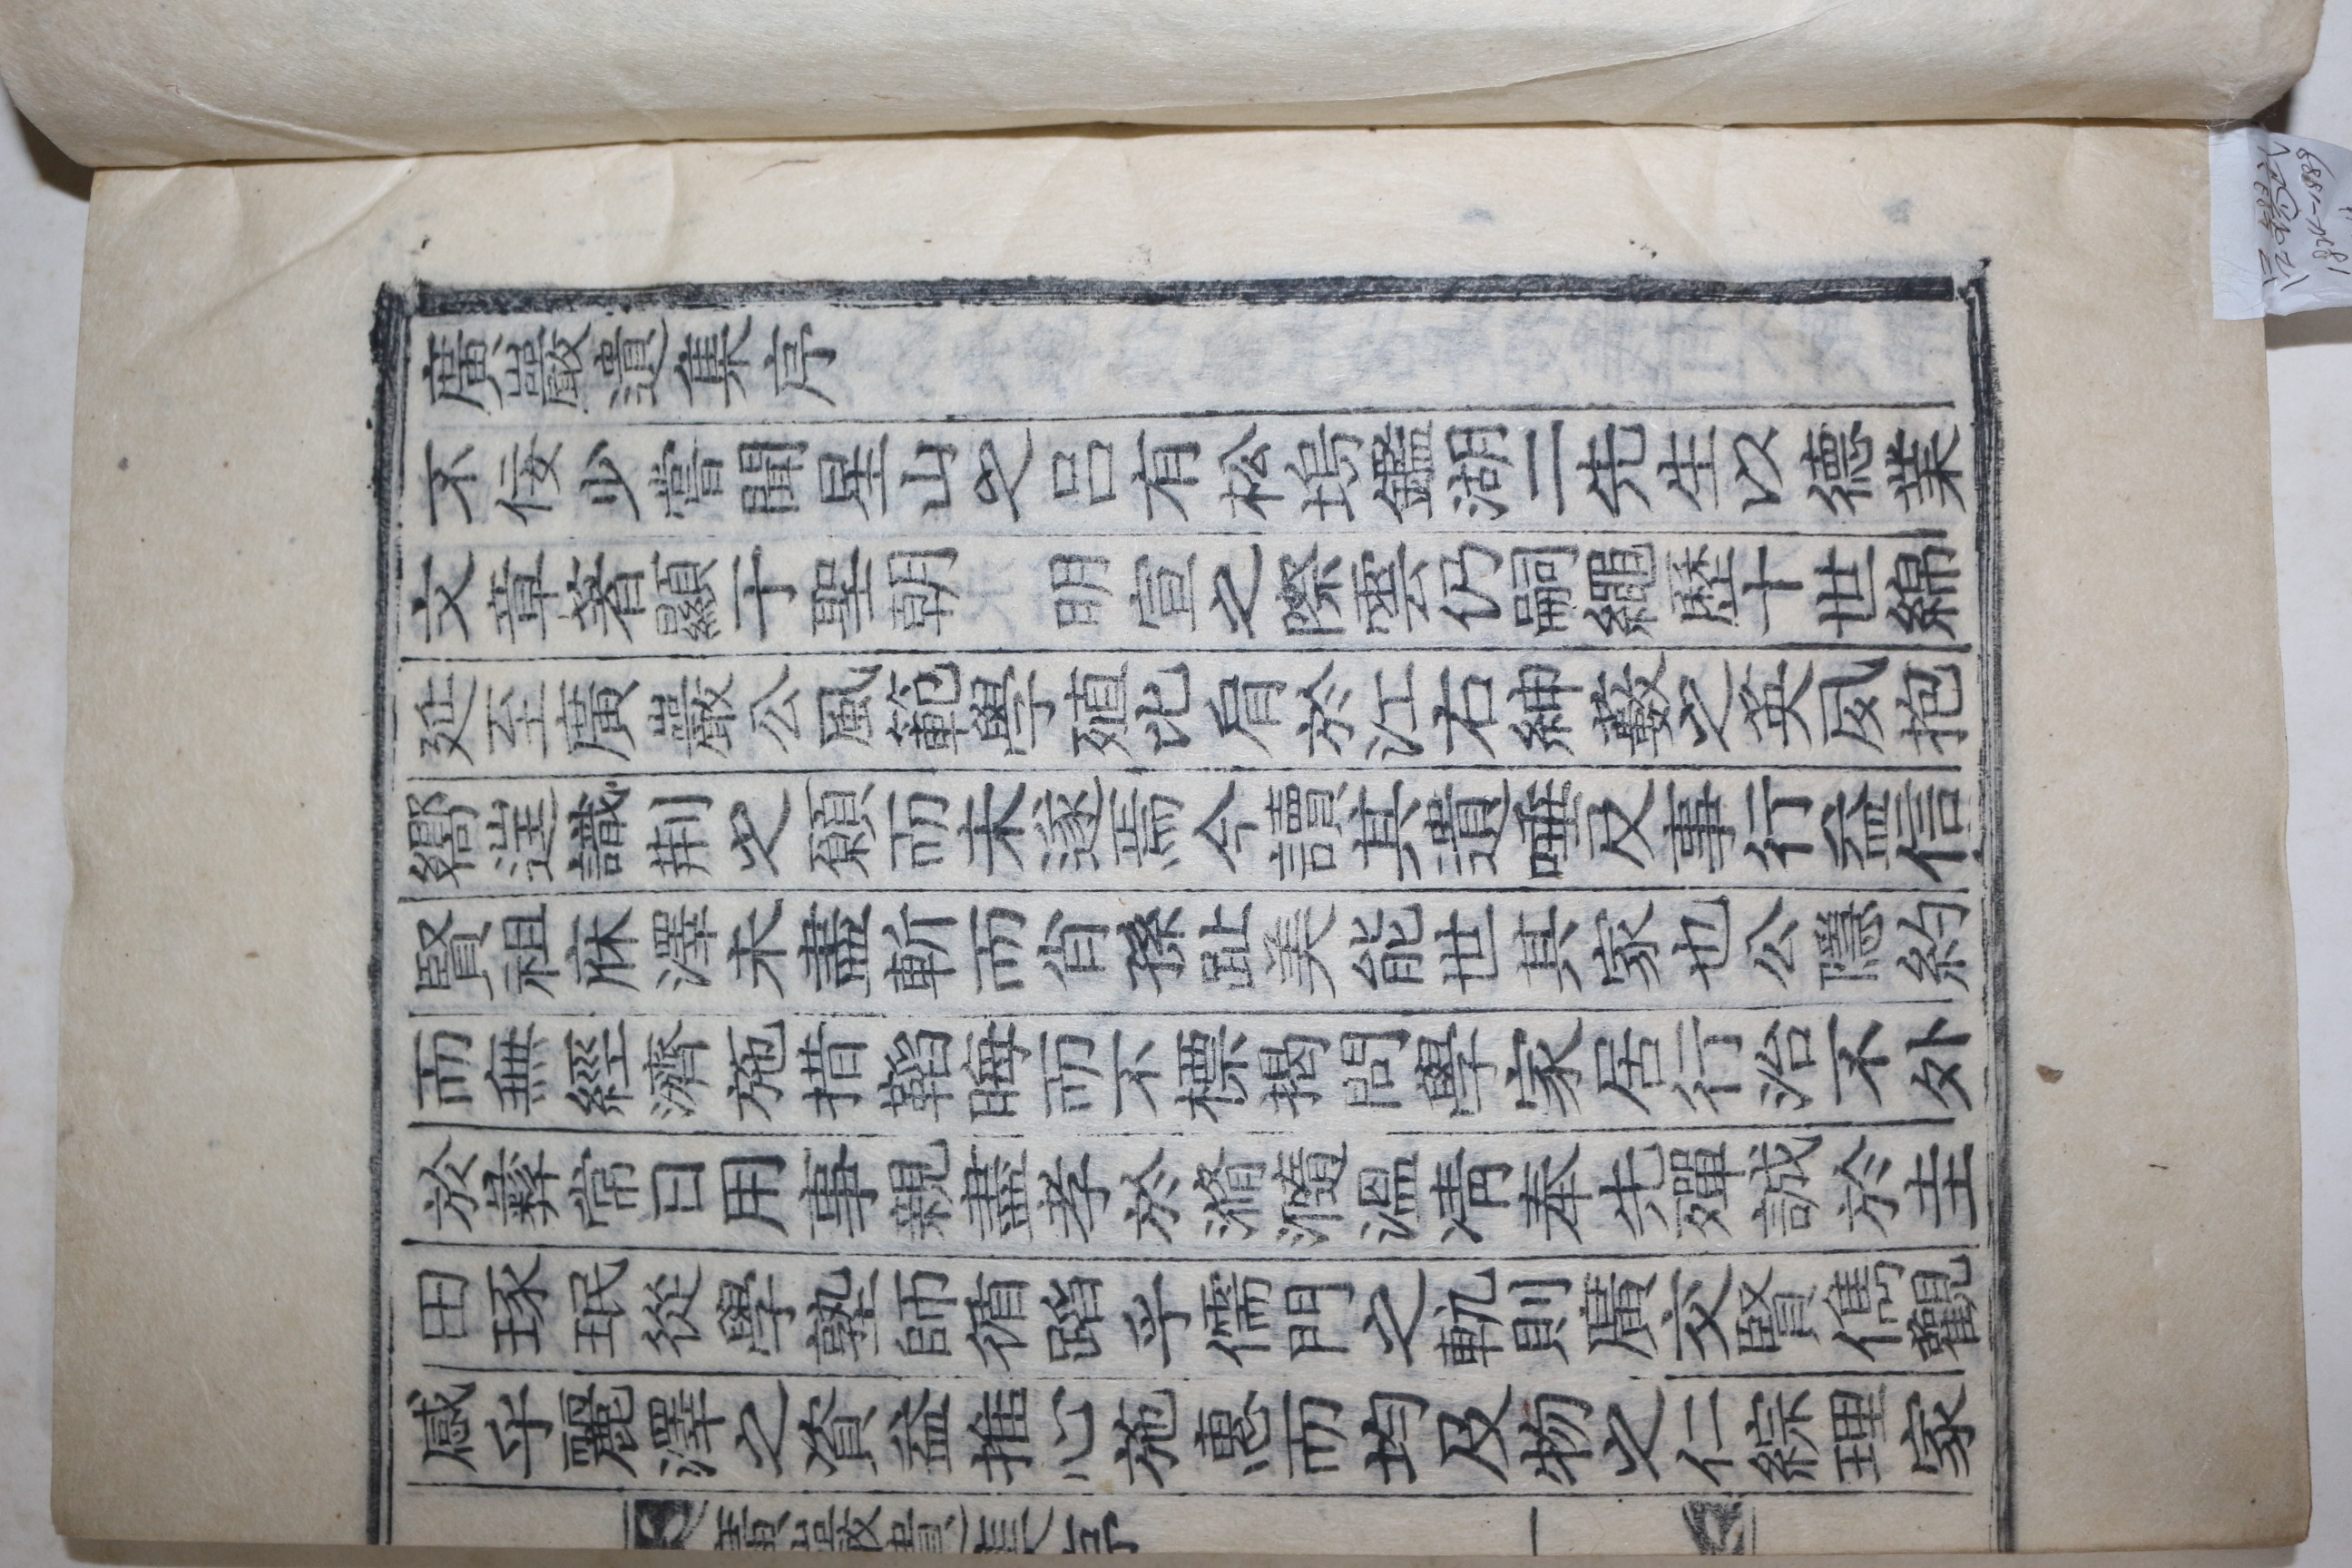 廣巖遺集序
不佞少嘗聞星山之呂有松塢鑑湖二先生以德業
文章著顯于聖朝 明宣之際雲仍嗣繩歷十世綿
延至廣巖公風範學殖比肩於江右紳蕤之英夙抱
嚮違識荆之願而未遂焉今讀其遺唾及事行益信
賢祖庥澤未盡斬而肖孫趾美能世其家也公隱約
而無經濟施措韜晦而不標揭問學家居行治不外
於彝常日用事親盡孝於滫瀡溫凊奉先殫誠於圭
田琢珉從學塾師循蹈乎儒門之軌則廣交賢儁觀
感乎麗澤之資益推心施惠而均及物之仁綜理家
廣巖遺集序 一